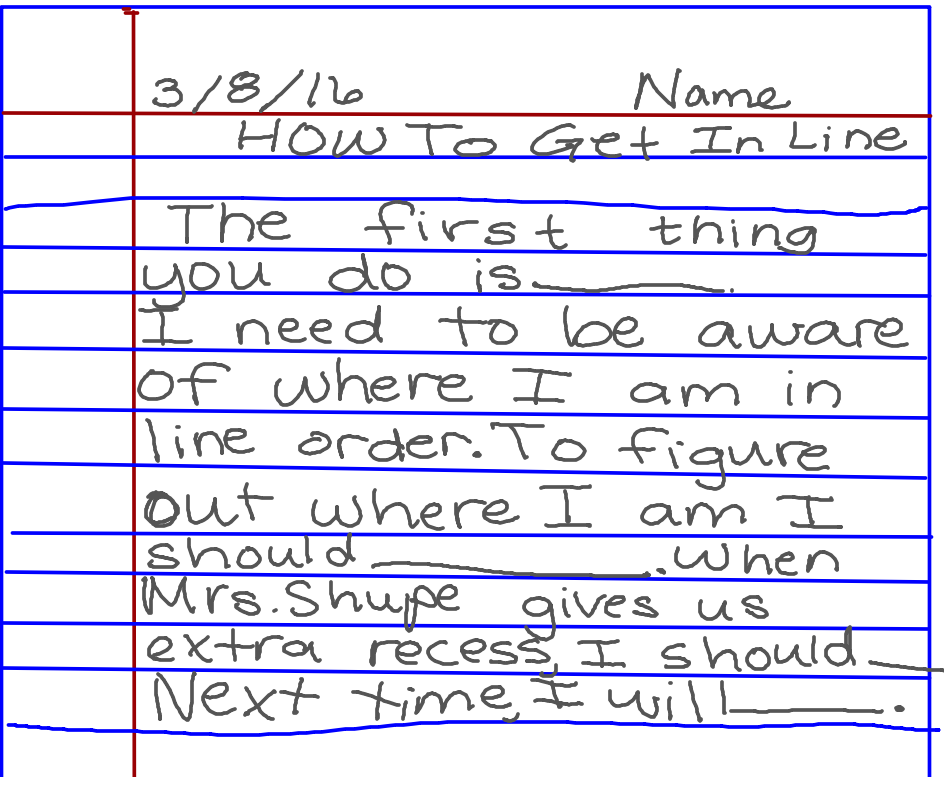 3/8/16 Name
How To Get In Line
The first thing
you do is ______.
I need to be aware
of where I am in
line order. To figure
out where I am I
should ________. When
Mrs. Shupe gives us
extra recess, I should ____
Next time, I will _____.